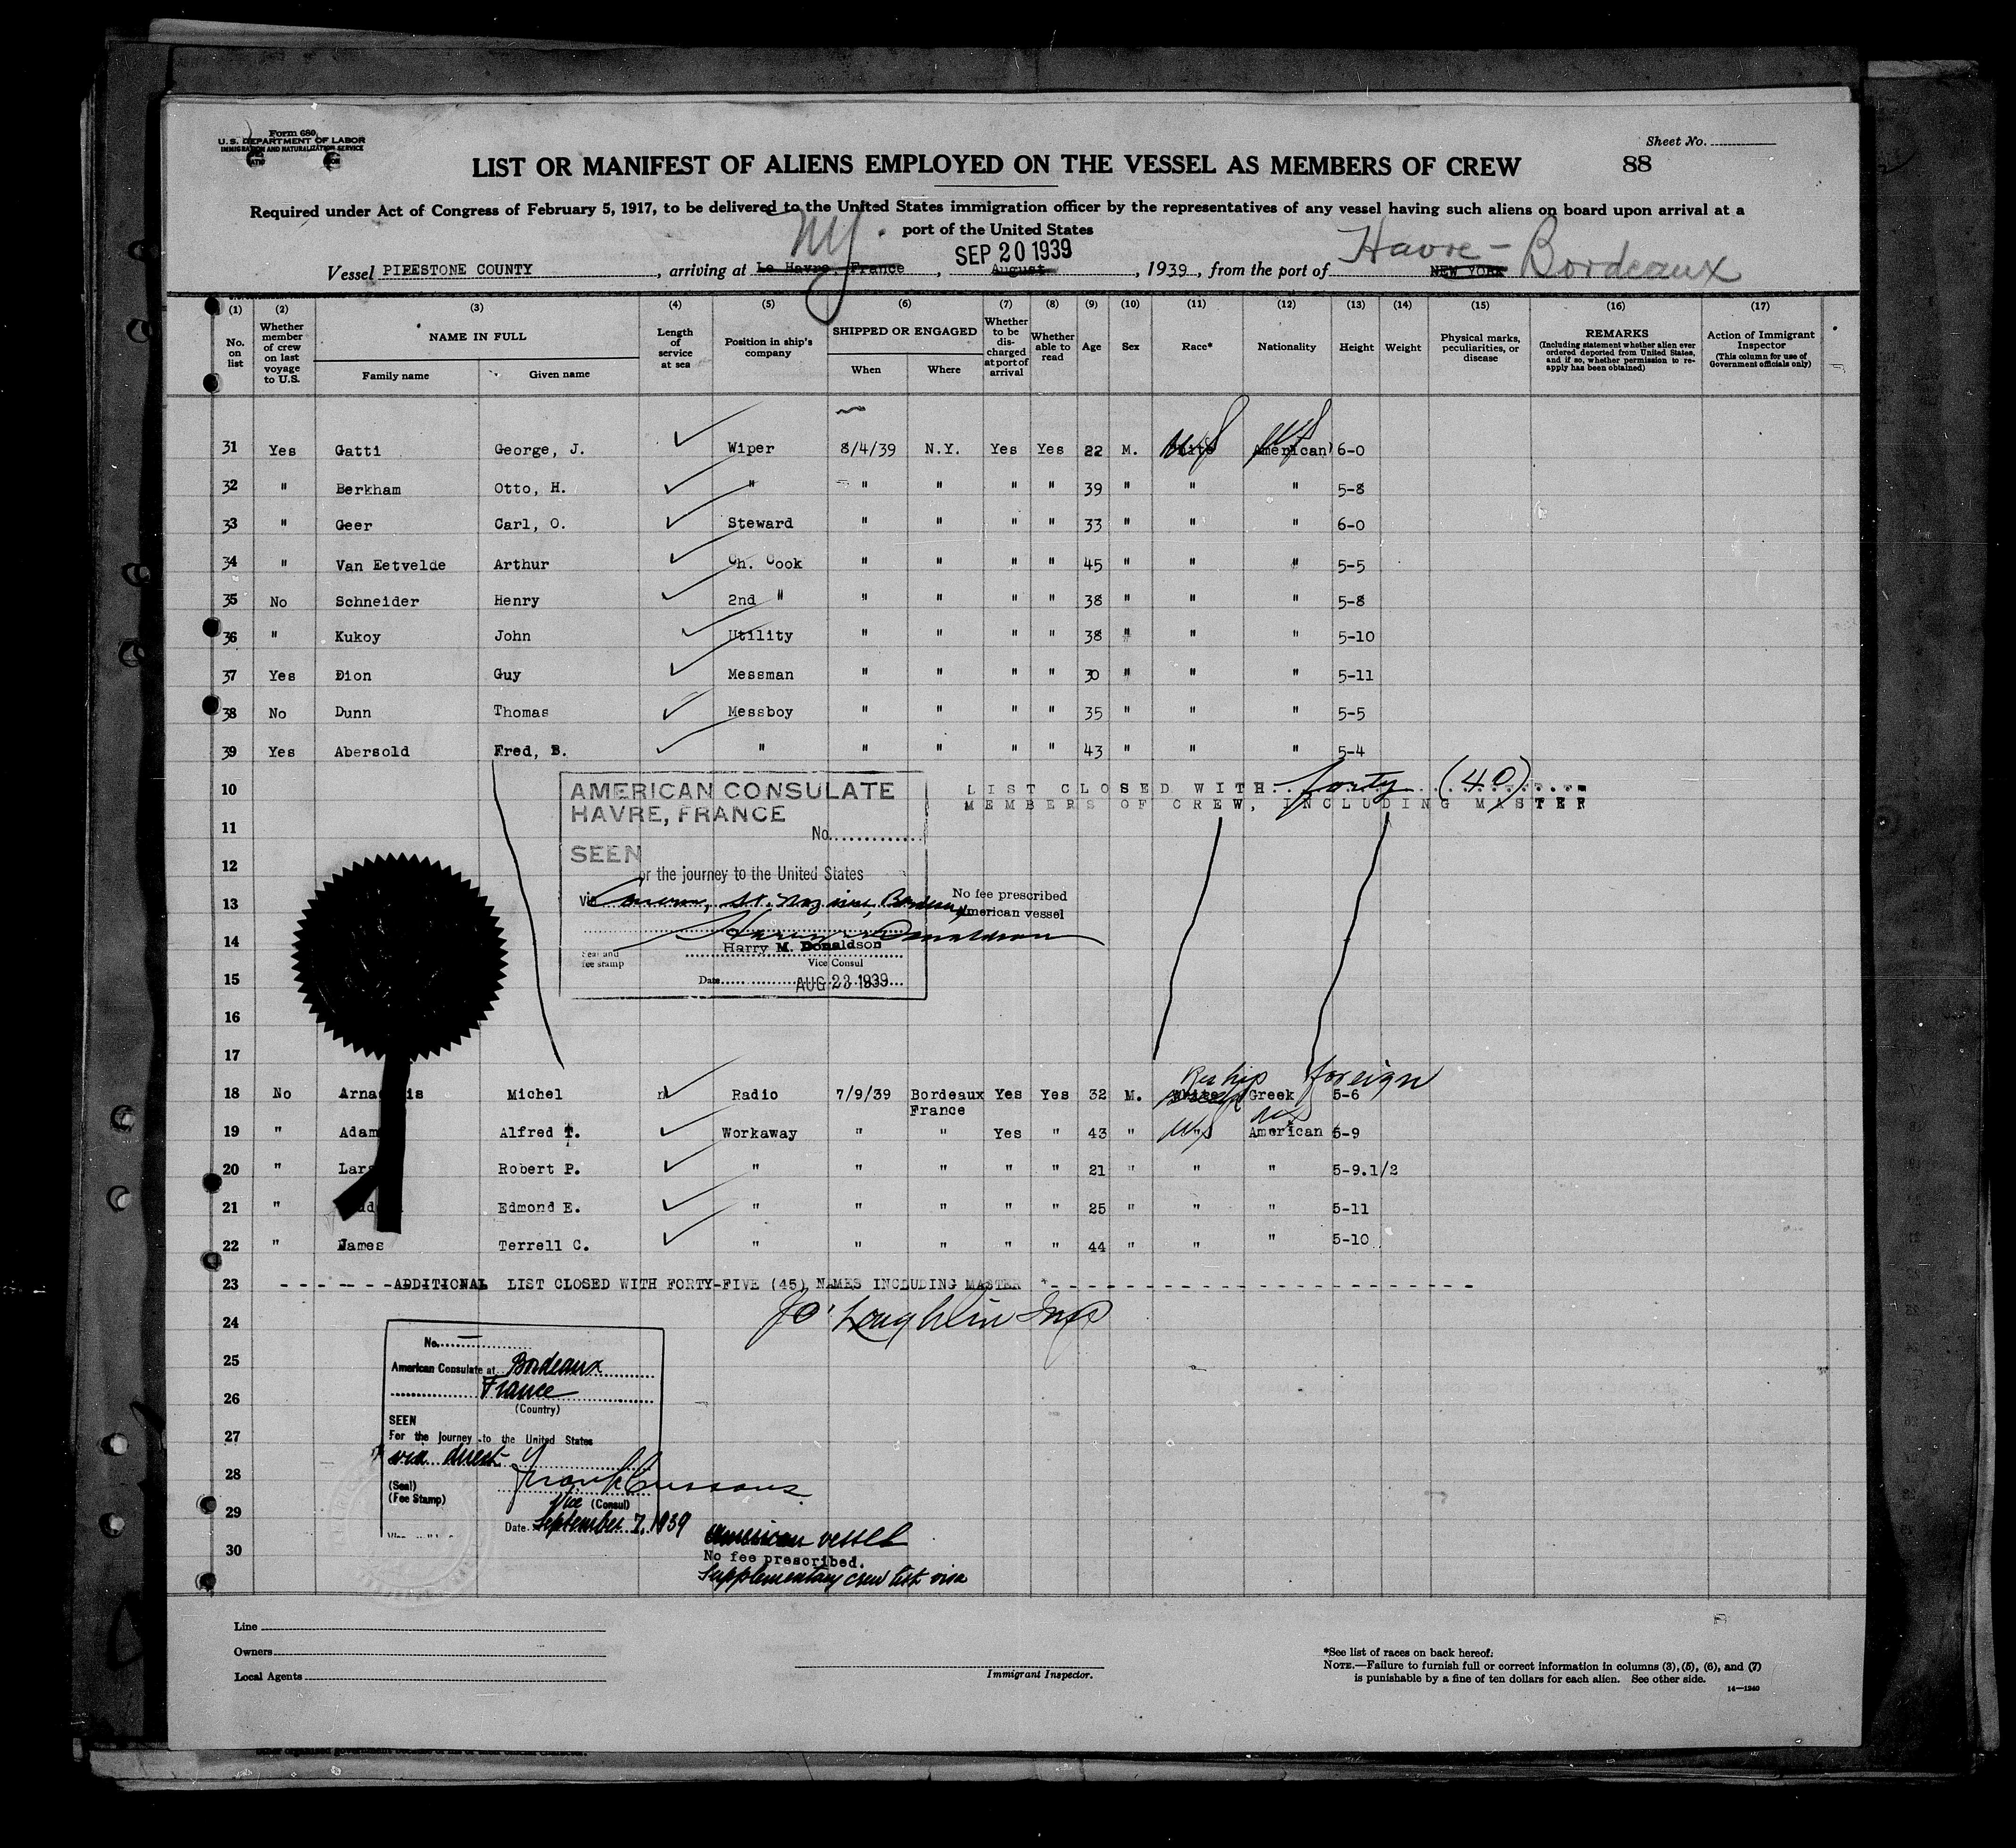 Form 680
U.S. DEPARTMENT OF LABOR
IMMIGRATION AND NATURALIZATION SERVICE
Sheet No.
LIST OR MANIFEST OF ALIENS EMPLOYED ON THE VESSEL AS MEMBERS OF CREW
88
Required under Act of Congress of February 5, 1917, to be delivered to the United States immigration officer by the representatives of any vessel having such aliens on board upon arrival at a
port of the United States
Vessel PIPESTONE COUNTY, arriving at Le Havre, France NY. , August SEP 20 1939, 1939, from the port of NEW YORK Havre - Bordeaux
(1) (2) (3) (4) (5) (6) (7) (8) (9) (10) (11) (12) (13) (14) (15) (16) (17)
No. on list
Whether member of crew on last voyage to U.S.
NAME IN FULL
Family name Given name
Length of service at sea
Position in ship's company
SHIPPED OR ENGAGED
When Where
Whether to be discharged at port of arrival
Whether able to read
Age
Sex
Race*
Nationality
Height
Weight
Physical marks, peculiarities, or disease
REMARKS
(Including statement whether alien ever ordered deported from United States, and if so, whether permission to re-apply has been obtained)
Action of Immigrant Inspector
(This column for use of Government officials only)
31 Yes Gatti George, J. Wiper 8/4/39 N.Y. Yes Yes 22 M. White American 6-0
32 " Berkham Otto, H. " " " " " 39 " " " 5-8
33 " Geer Carl, O. Steward " " " " 33 " " " 6-0
34 " Van Eetvelde Arthur Ch. Cook " " " " 45 " " " 5-5
35 No Schneider Henry 2nd " " " " " 38 " " " 5-8
36 " Kukoy John Utility " " " " 38 " " " 5-10
37 Yes Dion Guy Messman " " " " 30 " " " 5-11
38 No Dunn Thomas Messboy " " " " 35 " " " 5-5
39 Yes Abersold Fred, B. " " " " " 43 " " " 5-4
10 LIST CLOSED WITH forty (40)
MEMBERS OF CREW, INCLUDING MASTER
AMERICAN CONSULATE
HAVRE, FRANCE
No.
11
SEEN
12
or the journey to the United States
13
via St. Nazaire, Bordeaux
No fee prescribed
American vessel
14
Harry M. Donaldson
Harry M. Donaldson
Seal and fee stamp
Vice Consul
15
Date AUG 23 1939
16
17
foreign
18 No Michel Radio 7/9/39 Bordeaux France Yes Yes 32 M. White Greek 5-6
19 " Adam Alfred T. Workaway " " Yes " 43 " " American 5-9
20 " Lars Robert P. " " " " " 21 " " " 5-9.1/2
21 " Edmond E. " " " " " 25 " " " 5-11
22 " James Terrell C. " " " " " 44 " " " 5-10
23 ADDITIONAL LIST CLOSED WITH FORTY-FIVE (45) NAMES INCLUDING MASTER
24
J O'Loughlin Insp
No.
25
American Consulate at Bordeaux
France
26
(Country)
SEEN
27
For the journey to the United States
via direct
28
(Seal)
(Fee Stamp)
Vice (Consul)
29
Date September 7, 1939
American vessel
30
No fee prescribed.
Supplementary crew list visa
Line
Owners
Local Agents
Immigrant Inspector.
*See list of races on back hereof.
NOTE.—Failure to furnish full or correct information in columns (3), (5), (6), and (7)
is punishable by a fine of ten dollars for each alien. See other side.
14—1240